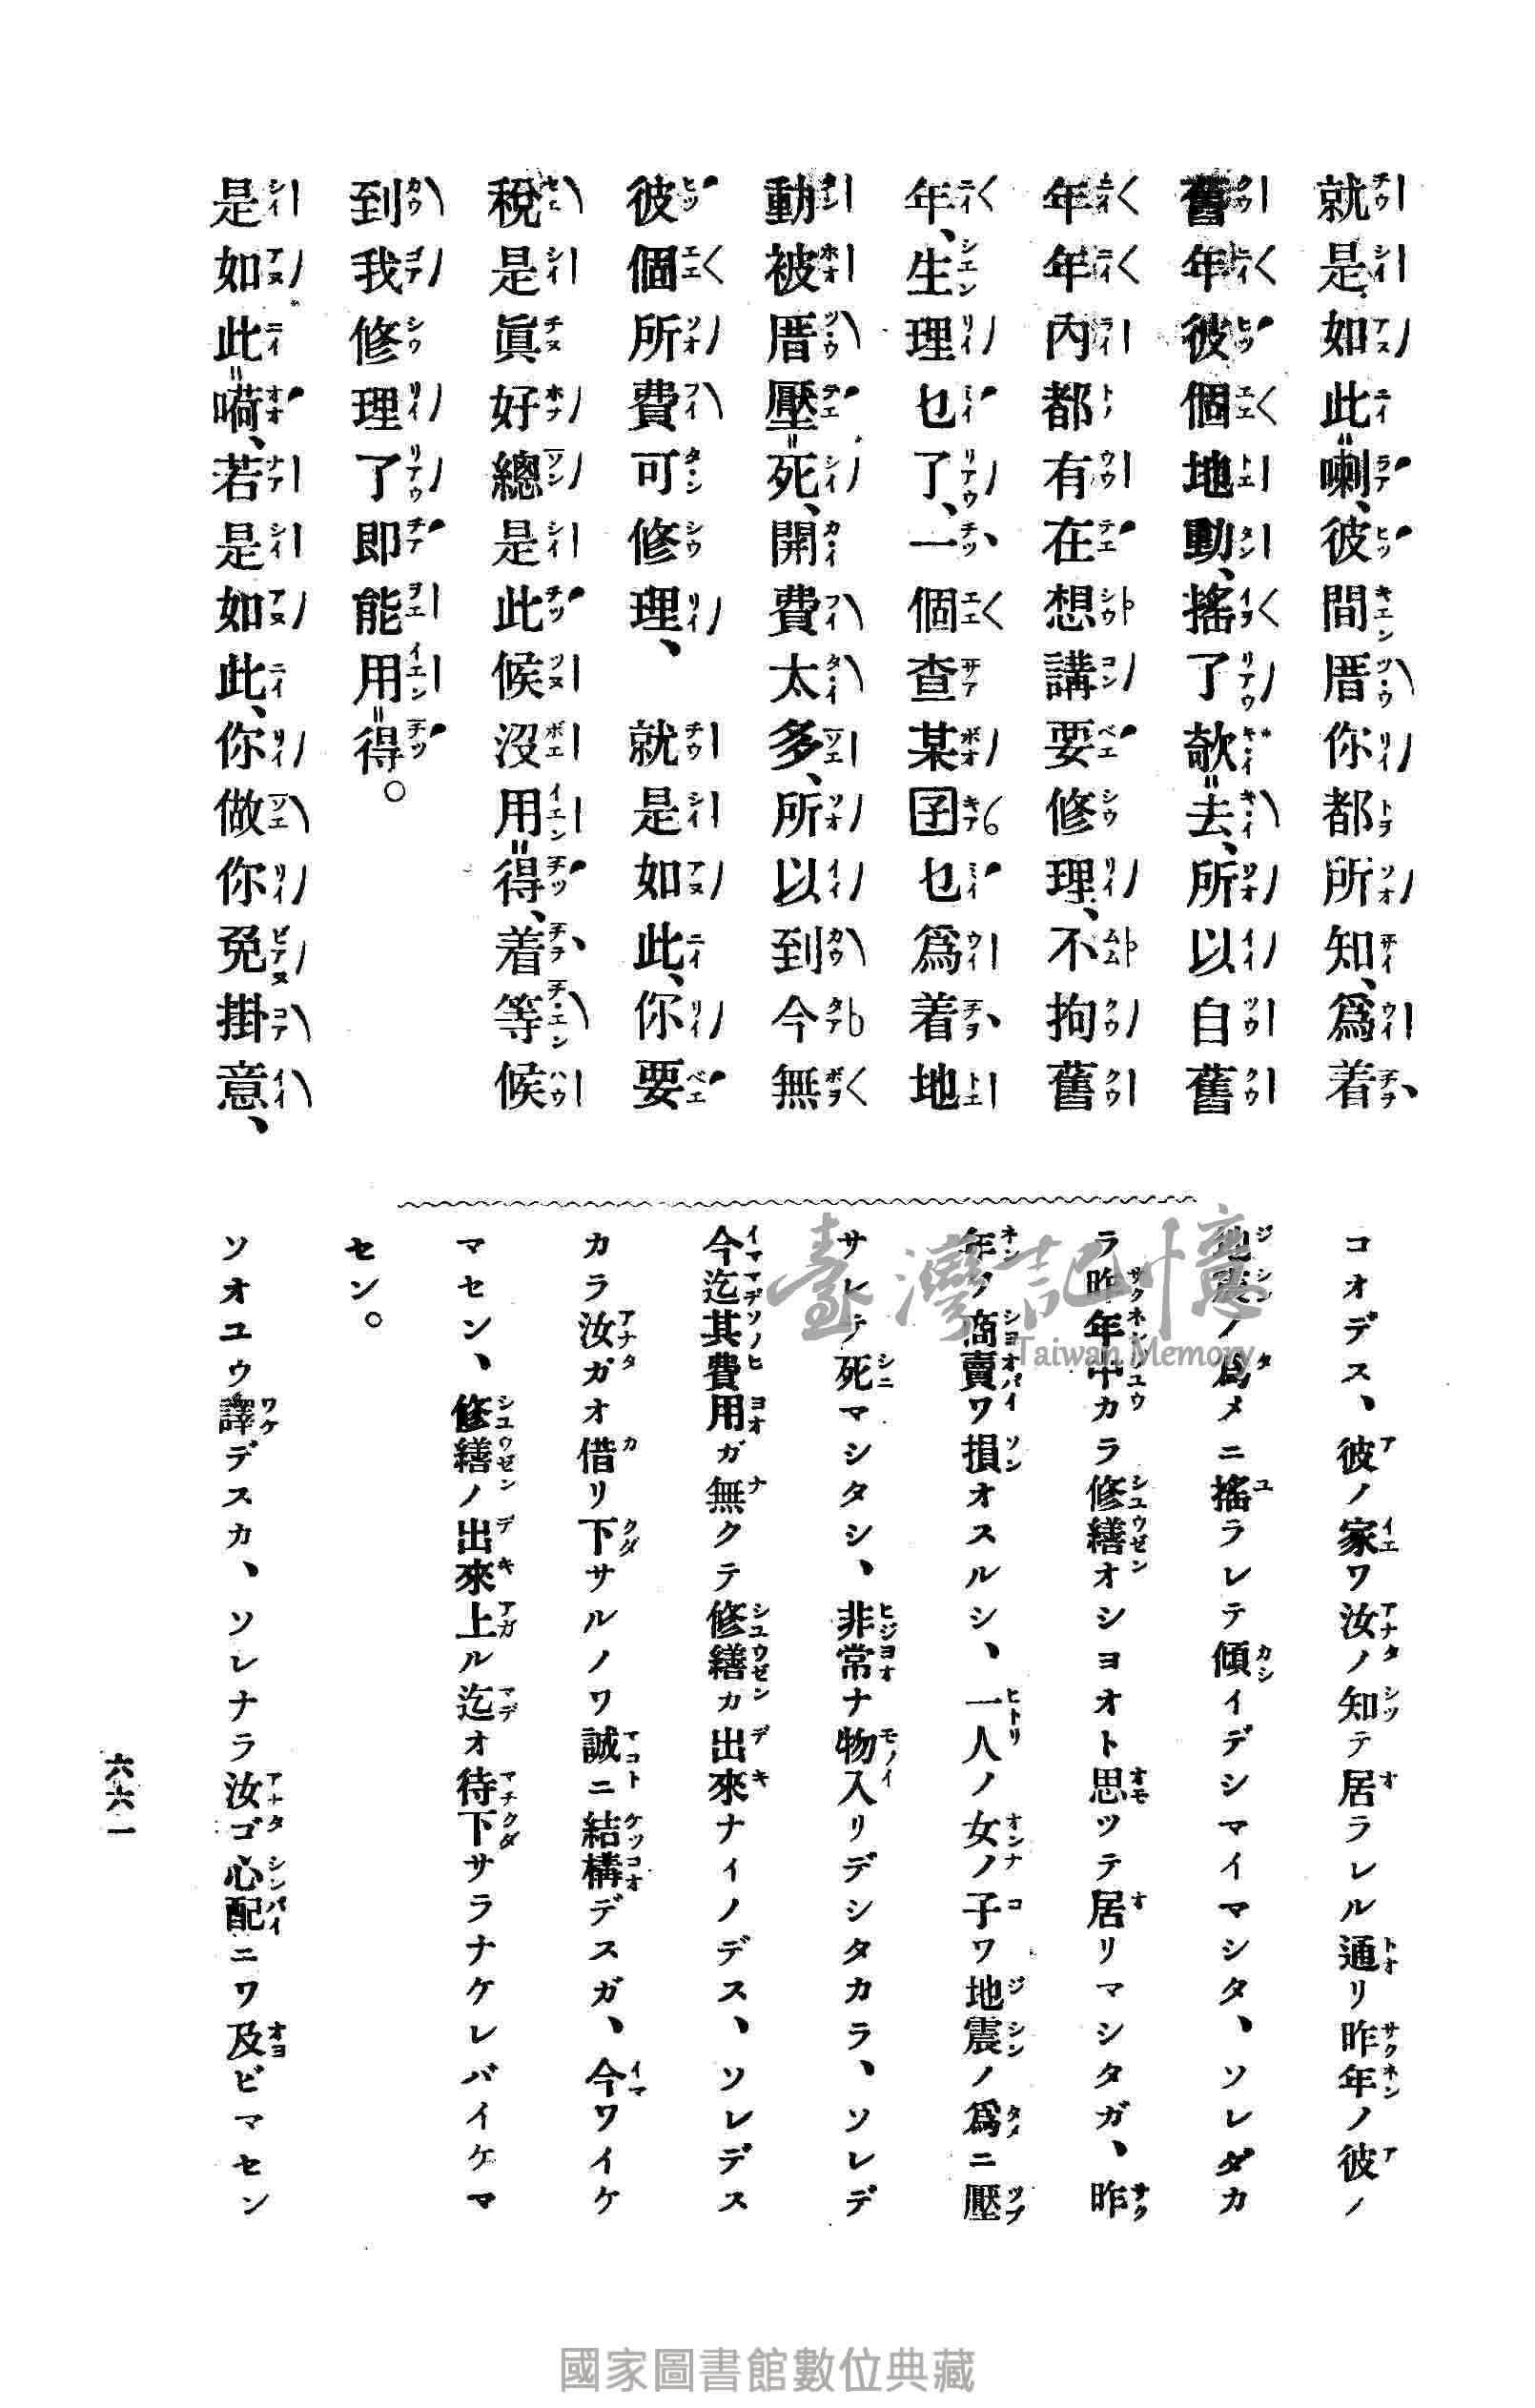 就是如此喇、彼間厝你都所知、爲着
舊年彼個地動、搖了欹去、所以自舊
年年內都有在想講要修理、不拘舊
年、生理乜了、一個查某囝乜爲着地
動被厝壓死、開費太多、所以到今無
彼個所費可修理、就是如此、你要
稅是眞好總是此候沒用得、着等候
到我修理了即能用得。
是如此嗬、若是如此、你做你免掛意、
コオデス、彼ノ家ワ汝ノ知テ居ラレル通リ昨年ノ彼ノ
地震ノ爲メニ搖ラレテ傾イデシマイマシタ、ソレダカ
ラ昨年中カラ修繕オシヨオト思ツテ居リマシタガ、昨
年ワ商賣ワ損オスルシ、一人ノ女ノ子ワ地震ノ爲ニ壓
サレテ死マシタシ、非常ナ物入リデシタカラ、ソレデ
今迄其費用ガ無クテ修繕カ出來ナイノデス、ソレデス
カラ汝ガオ借リ下サルノワ誠ニ結構デスガ、今ワイケ
マセン、修繕ノ出來上ル迄オ待下サラナケレバイケマ
セン。
ソオユウ譯デスカ、ソレナラ汝ゴ心配ニワ及ビマセン
六六一
臺灣記憶
Taiwan Memory
國家圖書館數位典藏